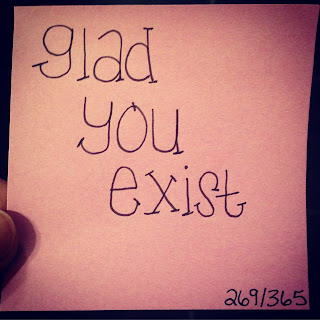 glad
you
exist
269/365